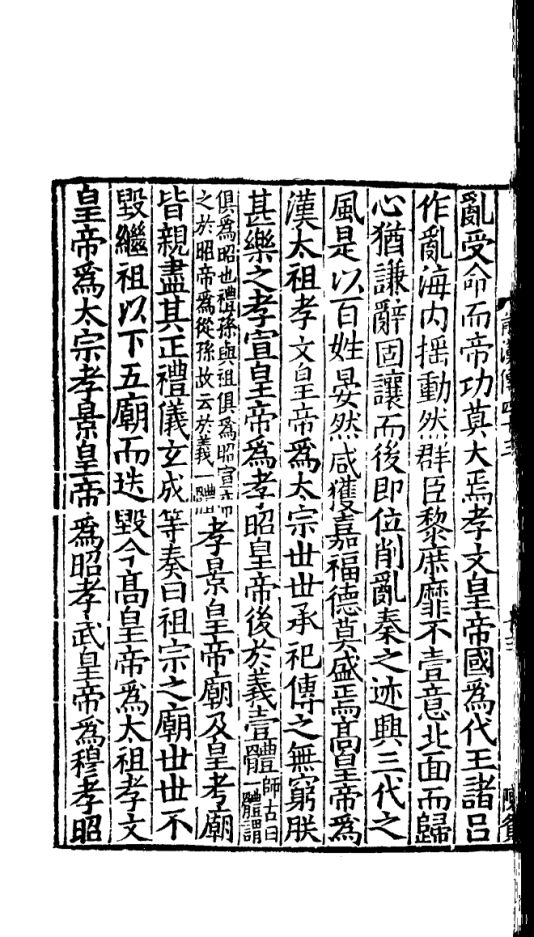 亂受命而帝功莫大焉孝文皇帝國爲代王諸呂
作亂海内揺動然群臣黎庶靡不壹意北面而歸
心猶謙辭固讓而後即位削亂秦之迹興三代之
風是以百姓晏然咸獲嘉福德莫盛焉髙皇帝爲
漢太祖孝文皇帝爲太宗丗丗承祀傳之無窮朕
甚樂之孝宣皇帝爲孝昭皇帝後於義壹體師古曰一體謂
俱爲昭也禮孫與祖俱爲昭宣帝之於昭帝爲從孫故云於義一體孝景皇帝廟及皇考廟
皆親盡其正禮儀玄成等奏曰祖宗之廟丗丗不
毀繼祖以下五廟而迭毀今髙皇帝爲太祖孝文
皇帝爲太宗孝景皇帝爲昭孝武皇帝爲穆孝昭